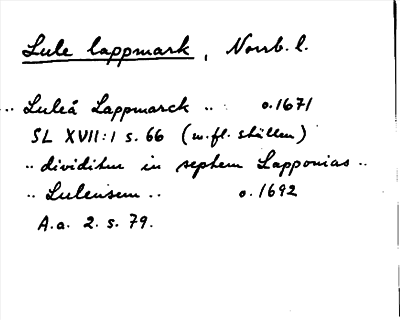 Lule lappmark, Norrb. l.
.. Luleå Lappmarck .. o. 1671
SL XVII:1 s. 66 (m. fl. ställen)
.. dividitur in septem Lapponias ..
.. Lulensem .. o. 1692
A.a. 2. s. 79.